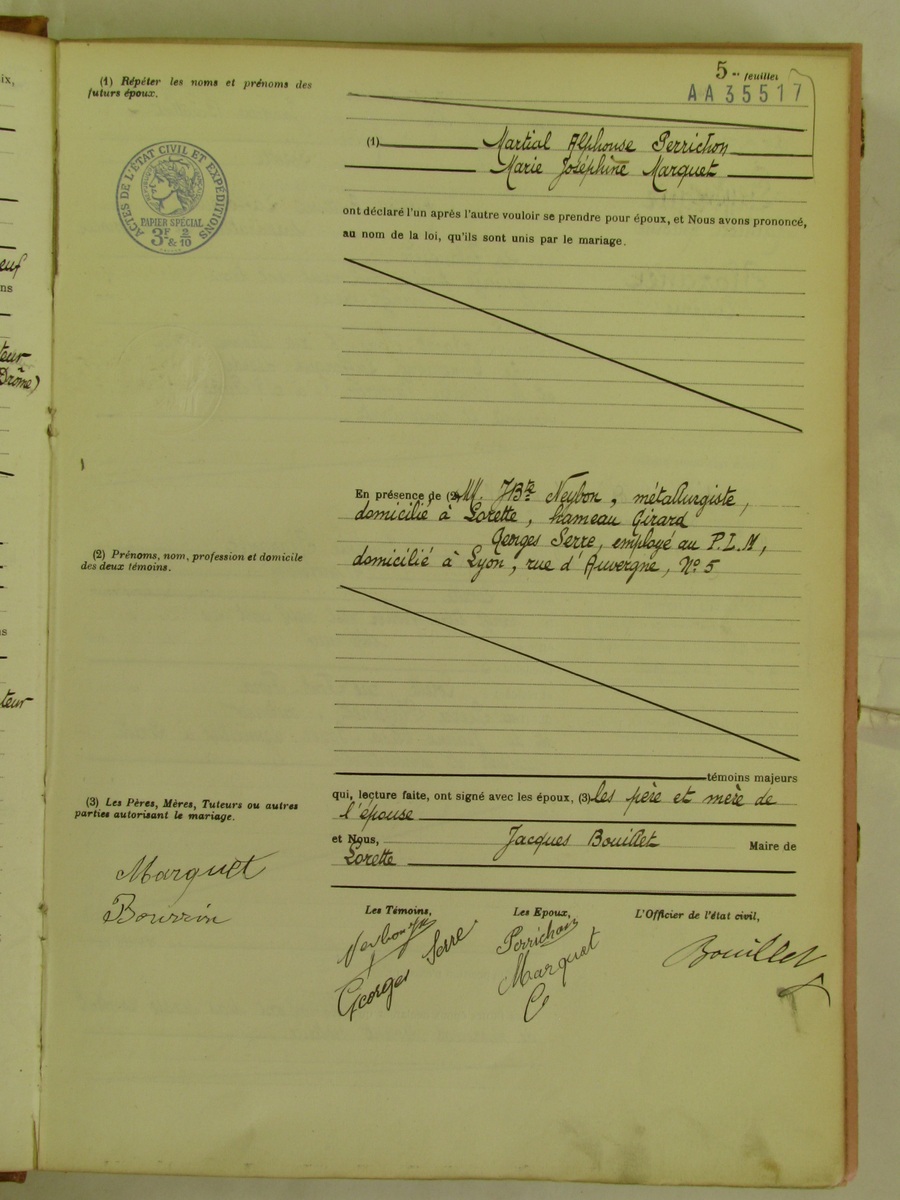 ix,
euf
ns
teur
Drôme)
s
teur
5me feuillet
AA35517
(1) Répéter les noms et prénoms des
futurs époux.
ACTES DE L'ÉTAT CIVIL ET EXPÉDITIONS
PAPIER SPÉCIAL
3F 2
& 10
(1) Martial Alphonse Perrichon
Marie Joséphine Marquet
ont déclaré l'un après l'autre vouloir se prendre pour époux, et Nous avons prononcé,
au nom de la loi, qu'ils sont unis par le mariage.
En présence de (2) MM. JBte Neybon, métallurgiste,
domicilié à Lorette, hameau Girard
Georges Serre, employé au P.L.M,
domicilié à Lyon, rue d'Auvergne, No 5
(2) Prénoms, nom, profession et domicile
des deux témoins.
témoins majeurs
(3) Les Pères, Mères, Tuteurs ou autres
parties autorisant le mariage.
qui, lecture faite, ont signé avec les époux, (3) les père et mère de
l'épouse
et Nous, Jacques Bouillet Maire de
Lorette
Marquet
Bourrin
Les Témoins,
Georges Serre
Les Epoux,
Perrichon
Marquet
L'Officier de l'état civil,
Bouillet